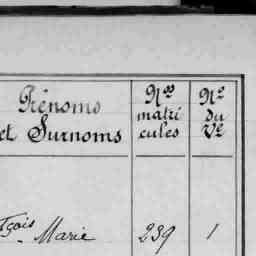 Prénoms
et Surnoms
Nos
matri
cules
No
du
Ve
çois Marie 239 1